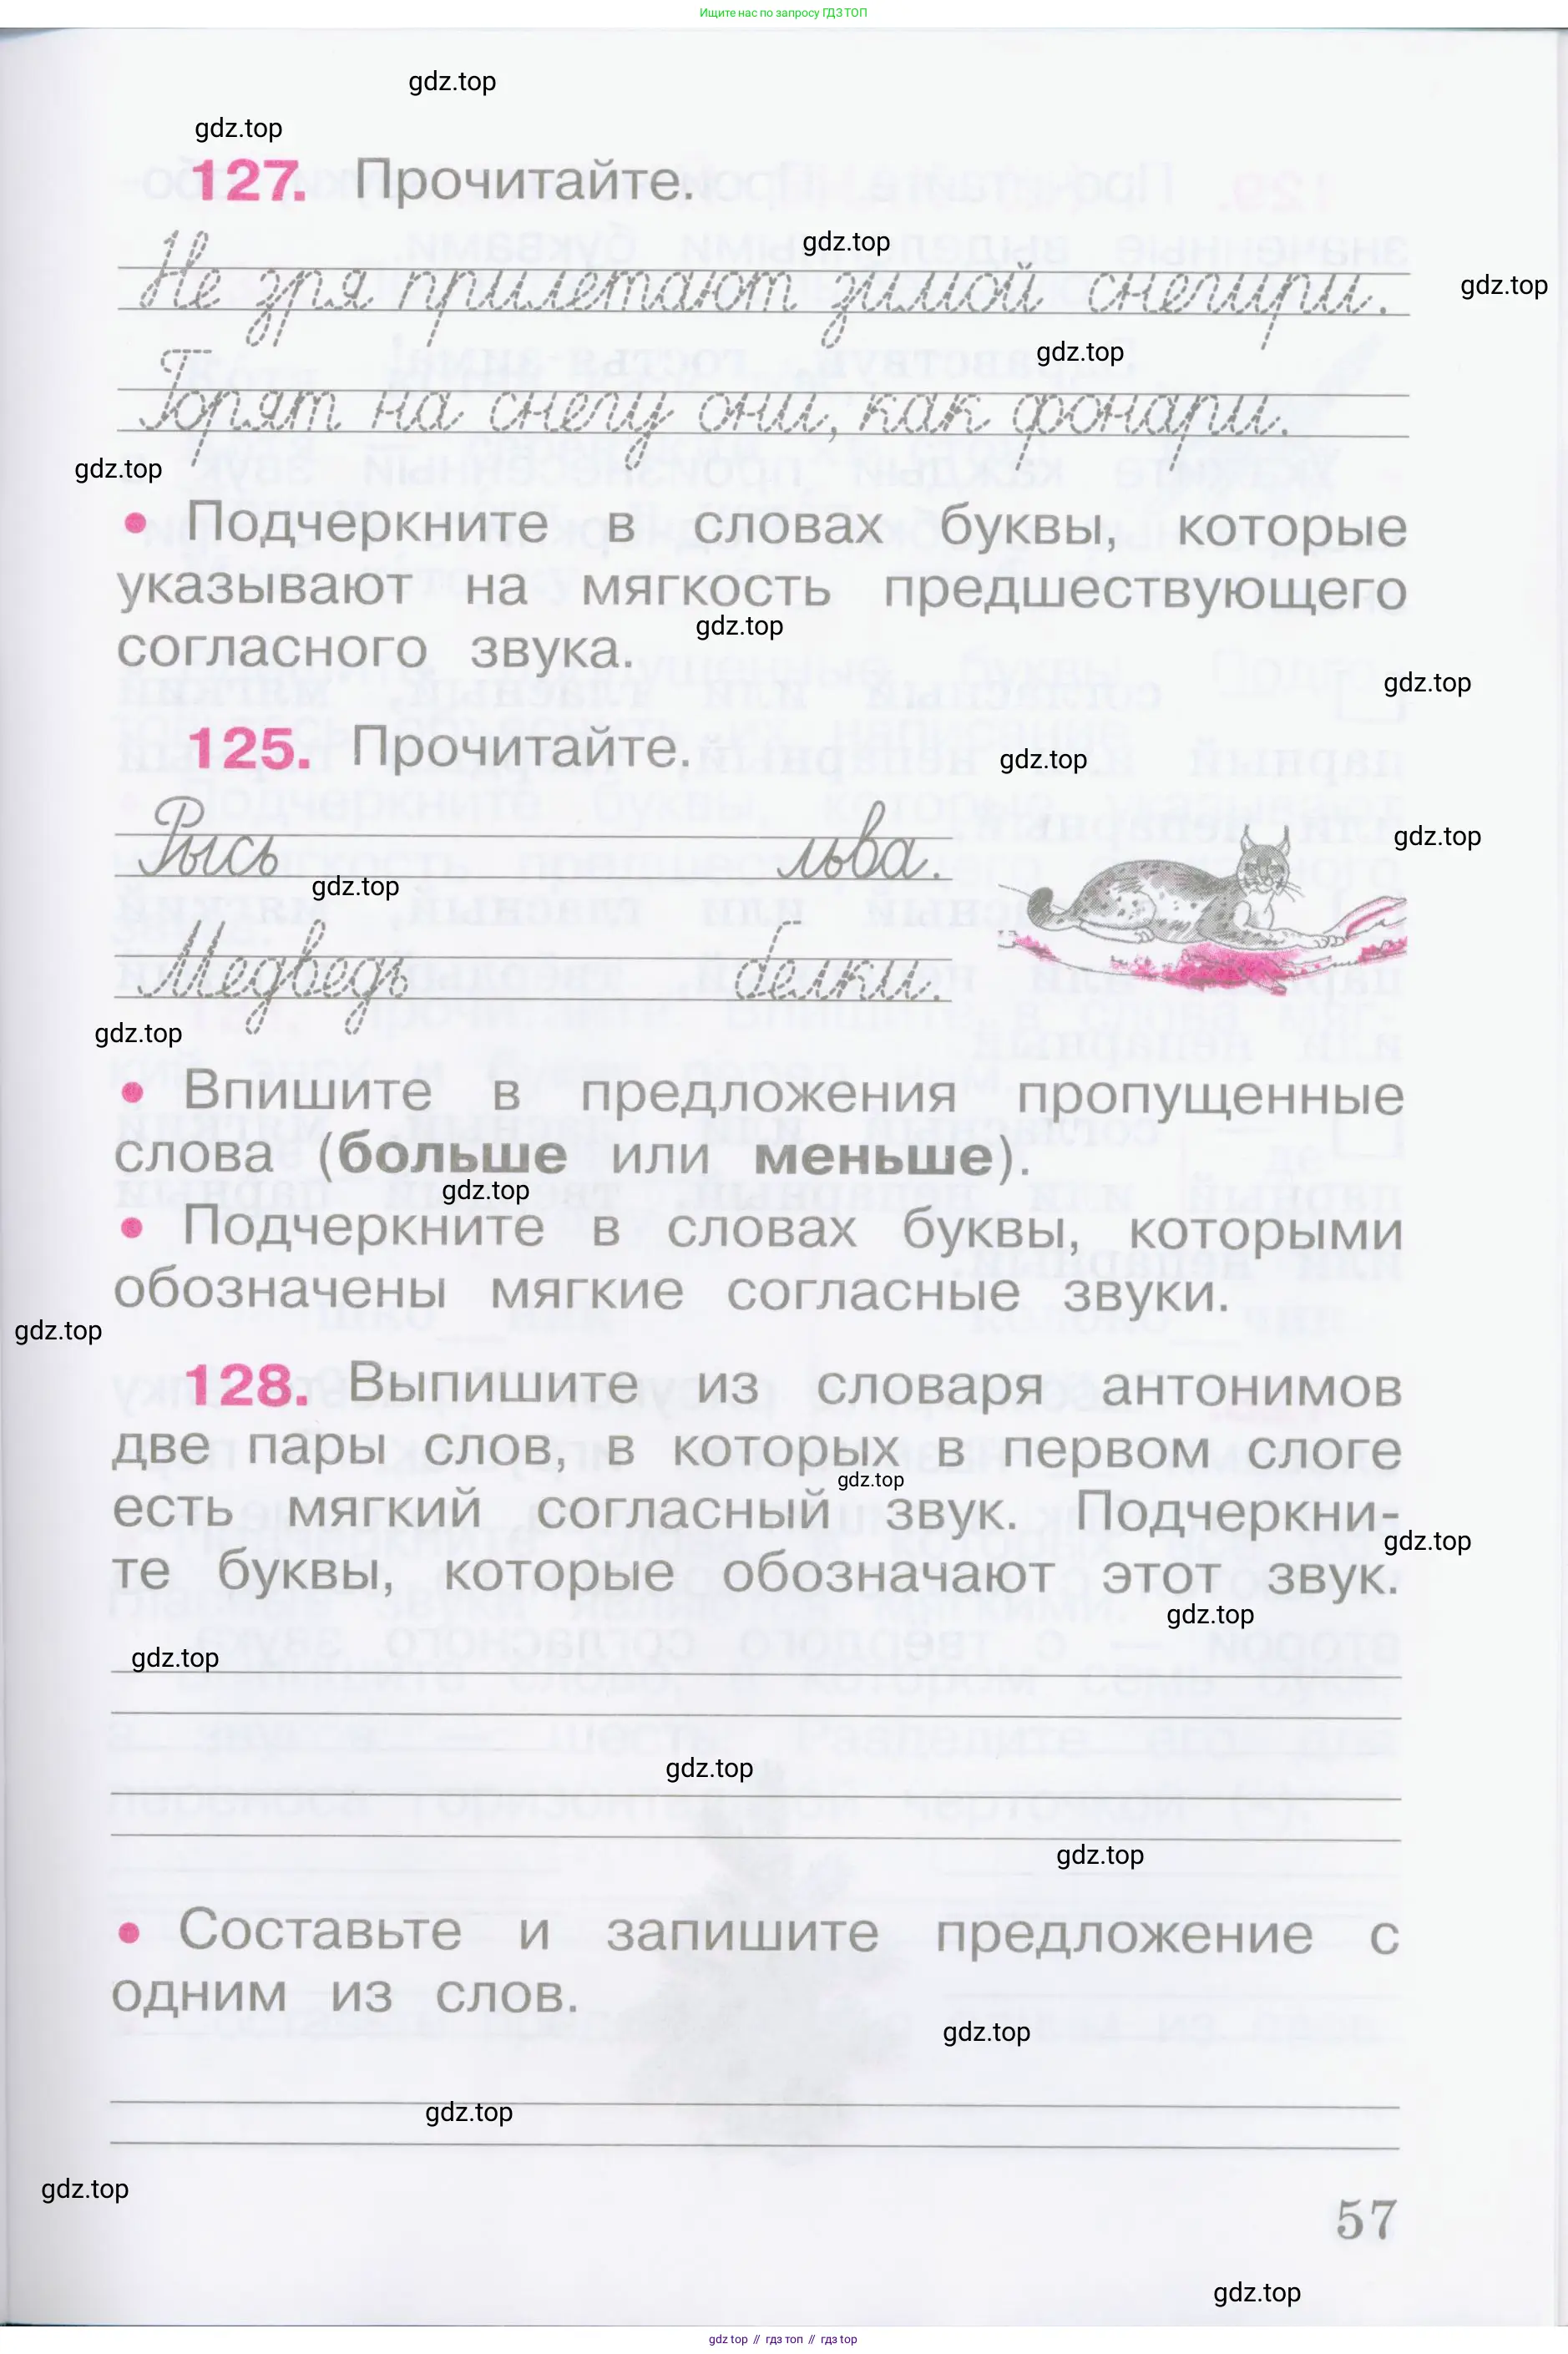 Ищите нас по запросу ГДЗ ТОП
gdz.top
gdz.top
127. Прочитайте.
gdz.top
Не зря прилетают зимой снегири.
gdz.top
gdz.top
Горят на снегу они, как фонари.
gdz.top
• Подчеркните в словах буквы, которые
указывают на мягкость предшествующего
gdz.top
согласного звука.
gdz.top
125. Прочитайте.
gdz.top
gdz.top
Рысь льва.
gdz.top
Медведь белки.
gdz.top
• Впишите в предложения пропущенные
слова (больше или меньше).
gdz.top
• Подчеркните в словах буквы, которыми
обозначены мягкие согласные звуки.
gdz.top
128. Выпишите из словаря антонимов
две пары слов, в которых в первом слоге
gdz.top
есть мягкий согласный звук. Подчеркни-
gdz.top
те буквы, которые обозначают этот звук.
gdz.top
gdz.top
gdz.top
gdz.top
• Составьте и запишите предложение с
одним из слов.
gdz.top
gdz.top
gdz.top
57
gdz.top
gdz top // гдз топ // гдз top